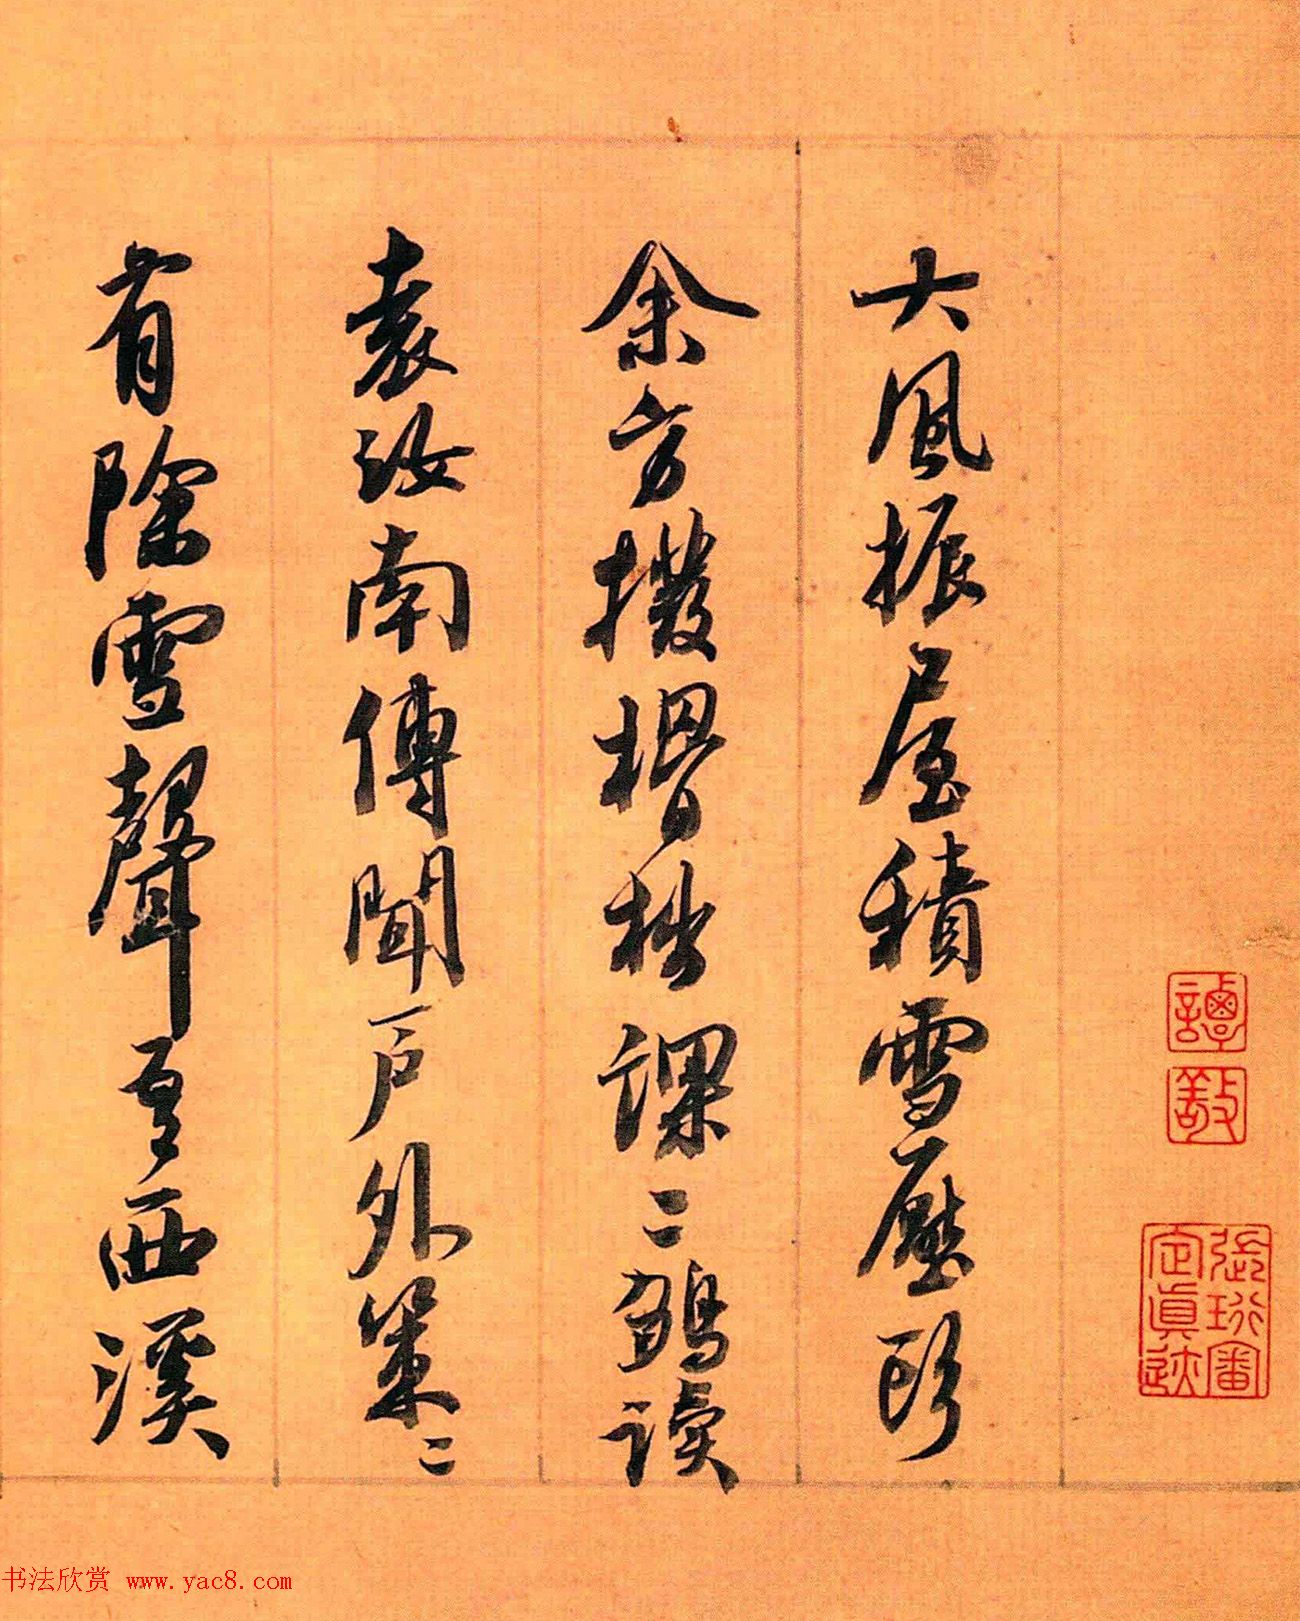 大風振屋積雪壓
余方撥榾柮課二鶵讀
袁汝南傳聞戶外策〻
有除雪聲西溪
譚敬
張珩審定真跡
书法欣赏 www.yac8.com